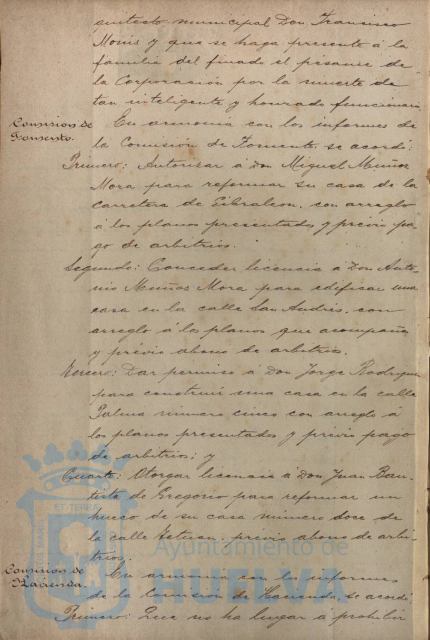 quitecto municipal Don Francisco
Monis y que se haga presente á la
familia del finado el pésame de
la Corporación por la muerte de
tan inteligente y honrado funcionario
Comisión de
Fomento.
En armonía con los informes de
la Comisión de Fomento, se acordó:
Primero: Autorizar á Don Miguel Muñoz
Mora para reformar su casa de la
carretera de Gibraleon, con arreglo
á los planos presentados y previo pa-
go de arbitrios.
Segundo: Conceder licencia á Don Anto-
nio Muñoz Mora para edificar una
casa en la calle San Andrés, con
arreglo á los planos que acompaña
y prévio abono de arbitrios.
Tercero: Dar permiso á Don Jorge Rodriguez
para construir una casa en la calle
Palma número cinco con arreglo á
los planos presentados y previo pago
de arbitrios; y
Cuarto: Otorgar licencia á Don Juan Bau-
tista de Gregorio para reformar un
hueco de su casa número doce de
la calle Tetuan, previo abono de arbi-
trios.
Comisión de
Hacienda.
En armonía con los informes
de la Comisión de Hacienda, se acordó:
Primero: Que no ha lugar á prohibir
Ayuntamiento de
HUELVA